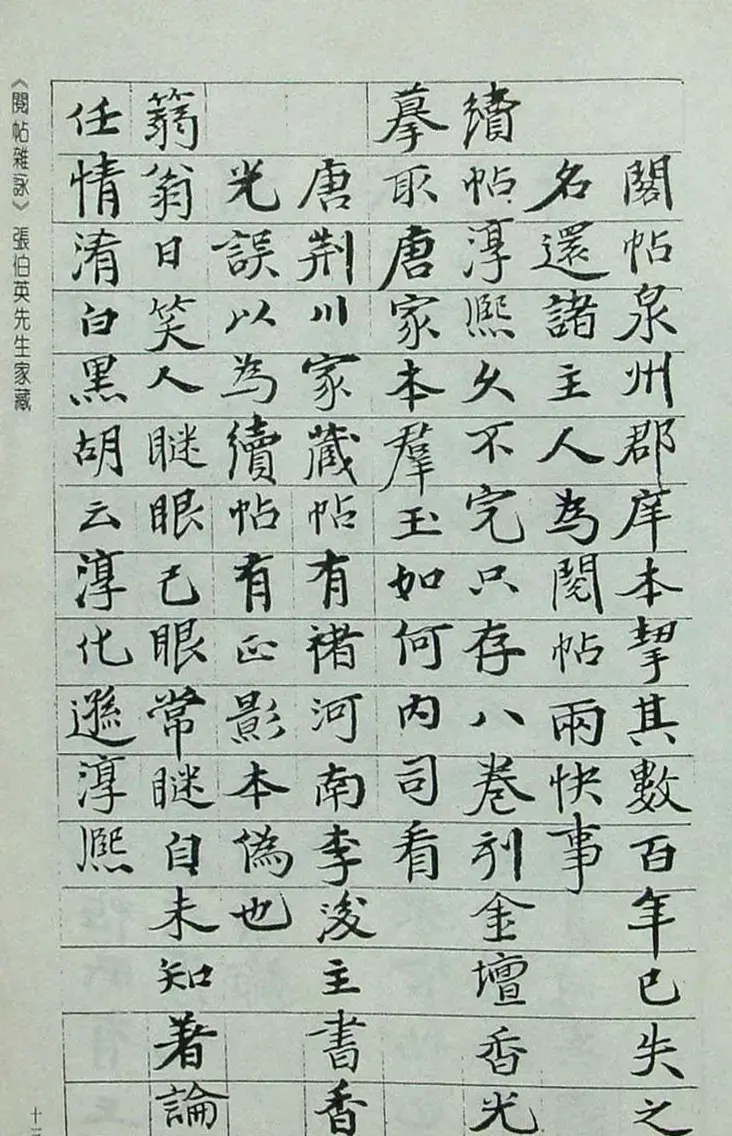 閣帖泉州郡庠本挈其數百年已失之
名還諸主人為閱帖兩快事
續帖淳熙久不完只存八卷刊金壇香光
摹取唐家本羣玉如何内司看
唐荆川家藏帖有褚河南李浚主書香
光誤以為續帖有正影本偽也
篛翁日笑人瞇眼己眼常瞇自未知著論
任情淆白黑胡云淳化遜淳熙
《閱帖雜詠》張伯英先生家藏